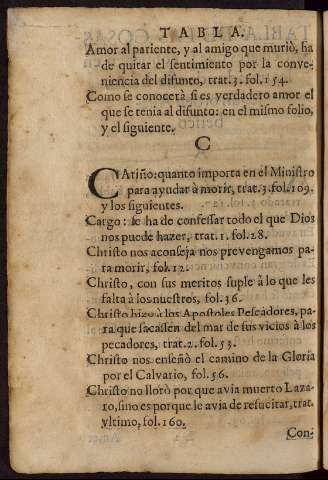 TABLA.
Amor al pariente, y al amigo que muriò, ha
de quitar el sentimiento por la conve-
niencia del difunto, trat. 3. fol. 154.
Como se conocerà si es verdadero amor el
que se tenia al difunto: en el mismo folio,
y el siguiente.
C
CAriño: quanto importa en el Ministro
para ayudar à morir, trat. 3. fol. 109.
y los siguientes.
Cargo: se ha de confessar todo el que Dios
nos puede hazer, trat. 1. fol. 28.
Christo nos aconseja nos prevengamos pa-
ra morir, fol. 12.
Christo, con sus meritos suple à lo que les
falta à los nuestros, fol. 36.
Christo hizo à los Apostoles Pescadores, pa-
ra que sacassen del mar de sus vicios à los
pecadores, trat. 2. fol. 53.
Christo nos enseñò el camino de la Gloria
por el Calvario, fol. 56.
Christo no llorò por que avia muerto Laza-
ro, sino es porque le avia de resucitar, trat.
vltimo, fol. 160.
Con-